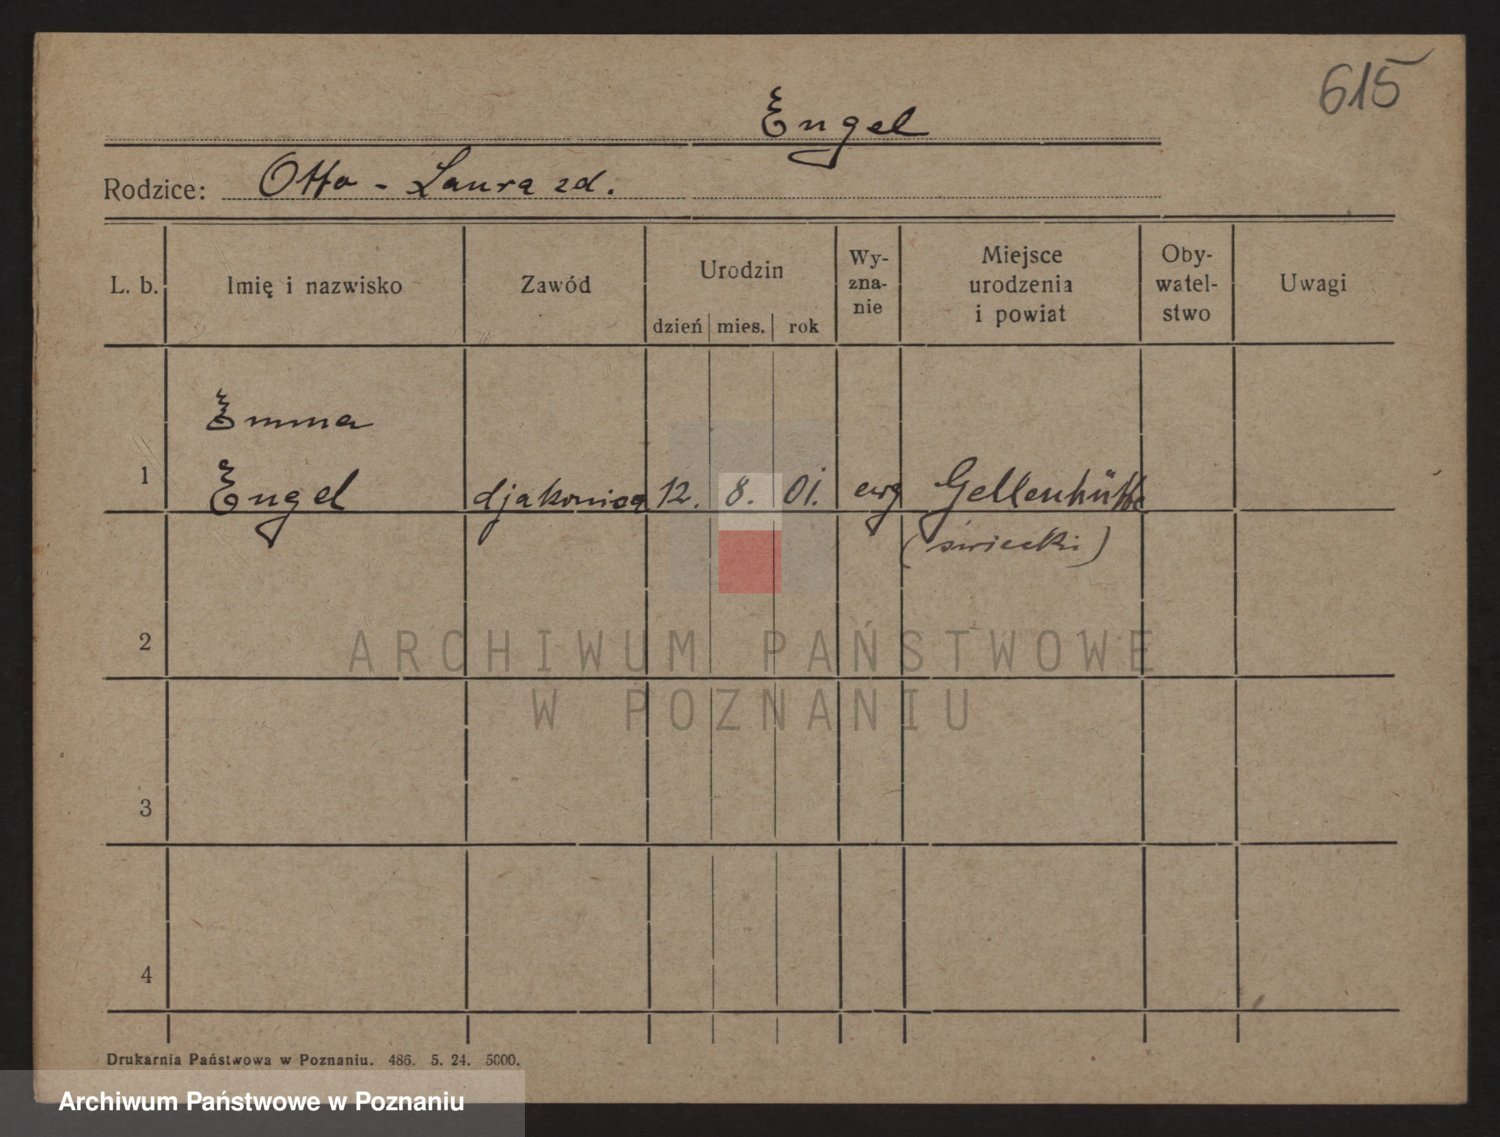 615
Engel
Rodzice: Otto - Laura zd.
L. b. Imię i nazwisko Zawód Urodzin dzień mies. rok Wy-zna-nie Miejsce urodzenia i powiat Oby-watel-stwo Uwagi
Emma
1 Engel djakonisa 12. 8. 01. ewg Gellenhütte
(świecki)
2
ARCHIWUM PAŃSTWOWE
W POZNANIU
3
4
Drukarnia Państwowa w Poznaniu. 486. 5. 24. 5000.
Archiwum Państwowe w Poznaniu